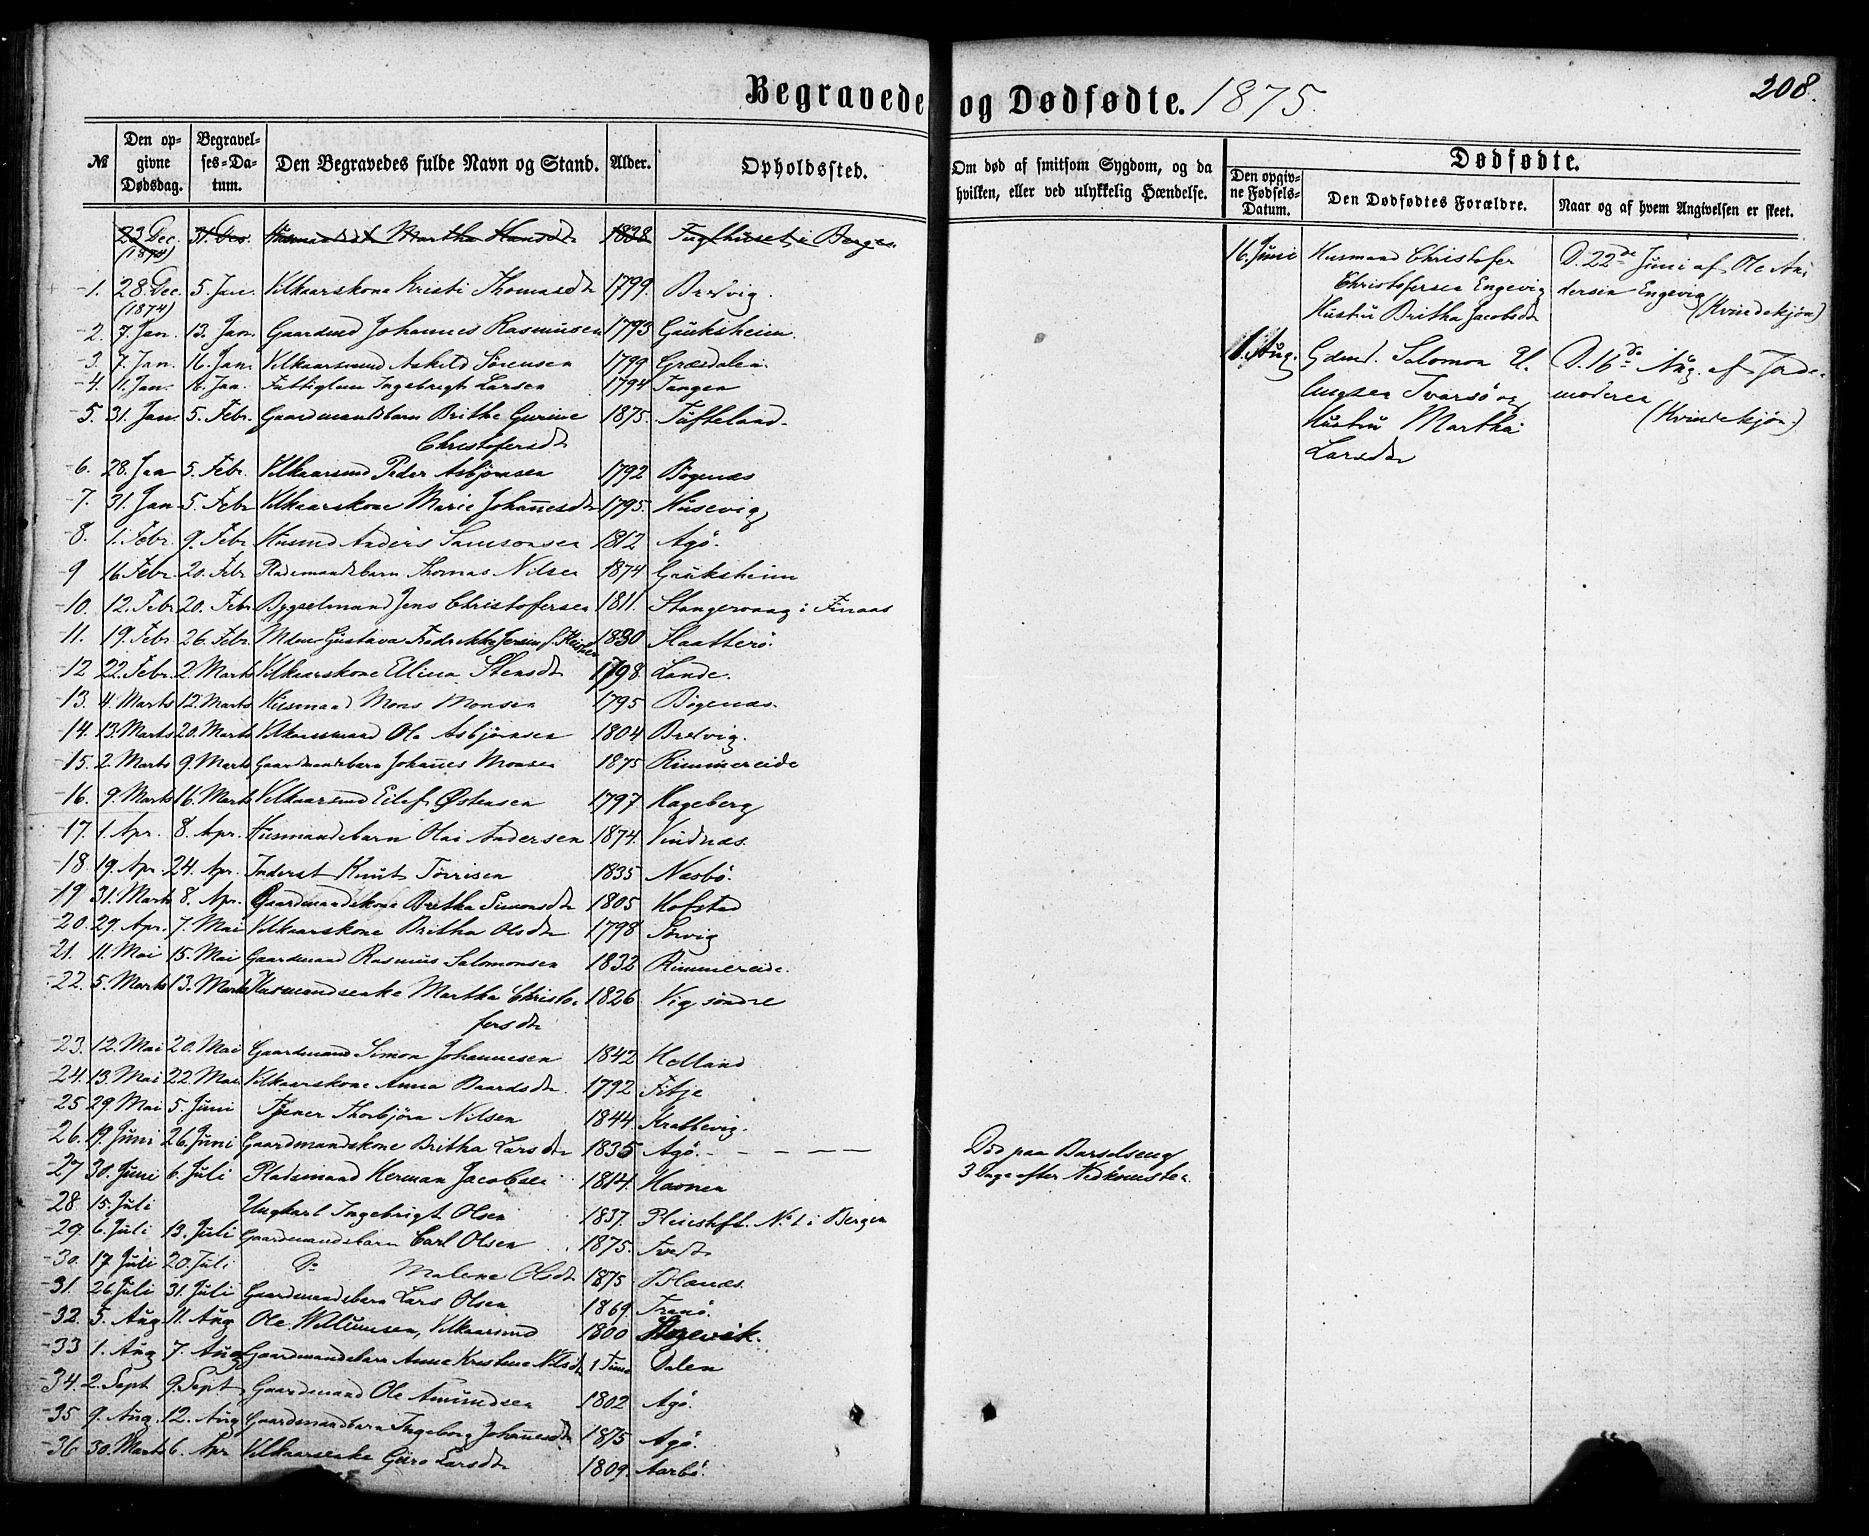 Begravede og Dødfødte. 1875.
208.
№ Den opgivne Dødsdag. Begravelses-Datum. Den Begravedes fulde Navn og Stand. Alder. Opholdssted. Om død af smitsom Sygdom, og da hvilken, eller ved ulykkelig Hændelse.
Dødfødte.
Den opgivne Fødsels-Datum. Den Dødfødtes Forældre. Naar og af hvem Angivelsen er skeet.
23 Dec. (1874) 31. Dec. Martha Hansdt 1828 i Bergen
1. 28. Dec. (1874) 5. Jan. Vilkaarskone Kristi Thomasdt 1799. Brdvig.
2. 7. Jan. 13. Jan. Gaardmd Johannes Rasmusen 1793 Gauksheim.
3. 7. Jan. 16. Jan. Vilkaarsmd Askild Sørensen 1799 Græsdalen.
4. 11. Jan. 16. Jan. Fattiglem Ingebrigt Larsen 1794 Tangen
5. 31. Jan. 5. Febr. Gaardmandsbarn Brithe Gurine 1875. Tufteland.
Christofersdt
6. 28. Jan 5. Febr. Vilkaarsmd Peder Asbjørnsen 1792 Bøgenæs
7. 31. Jan 5. Febr Vilkaarskone Marie Johanesdt 1795. Husevig
8. 1. Febr. 9. Febr Husmd Anders Samsonsen 1812 Agø.
9 16 Febr 20. Febr Pladsmandsbarn Thomas Nilsen 1874 Gauksheim
10. 12. Febr 20. Febr Bygselmand Jens Christofersen 1811. Stangervaag i Finaas
11. 19. Febr 26. Febr. Gustava 1830 Flatterø.
12 22. Febr. 2. Marts Vilkaarskone Ellina Stensdt 1798. Lande.
13. 4. Marts 12. Marts Husmand Mons Monsen 1795 Bøgenæs.
14. 13. Marts 20. Marts Vilkaarsmand Ole Asbjørnsen 1804 Brdvig.
15. 2. Marts 9. Marts Gaardmandsbarn Johanes Monsen 1875 Rimmereide
16. 9. Marts 16. Marts Vilkaarsmd Eilef Østensen 1797. Hageberg
17. 1. Apr. 8. Apr. Husmandsbarn Olai Andersen 1874. Vindnæs.
18 19. Apr. 24. Apr. Inderst Knut Tørrisen 1835 Næsbø.
19 31. Marts 8. Apr. Gaardmandskone Britha Simonsdt 1805 Hofstad
20. 29. Apr. 7. Mai Vilkaarskone Britha Olsdt 1798 Sørvig
21. 11. Mai 15. Mai Gaardmand Rasmus Salomonsen 1832 Rimmereide.
22. 5. Marts 13. Marts Husmandsenke Martha Christo- 1826 Vig søndre
fersdt
23. 12. Mai 20. Mai Gaardmand Simon Johannesen 1842 Helland
24. 13. Mai 22. Mai Vilkaarskone Anna Baardsdt. 1792 Fitje
25 29. Mai 5. Juni Tjener Thorbjørn Nilsen 1844. Krabbevig.
26. 19. Juni 26. Juni Gaardmandskone Britha Larsdt 1835 Agø. - - - - Død paa Barselseng
3 Dage efter Nedkomsten.
27 30. Juni 6. Juli Pladsmand Herman Jacobsen 1814. Havnen
28 15. Juli Ungkarl Ingebrigt Olsen 1837. Pleiestift. No 1 i Bergen
29. 6. Juli 13. Juli Gaardmandsbarn Carl Olsen 1875. Tvedt
30. 17 Juli 20. Juli Do Malene Olsdt 1875
31. 26 Juli 31. Juli Gaardmandsbarn Lars Olsen 1869. Tranø.
32. 5. Aug 11. Aug Ole Willumsen, Vilkaarsmd 1800
33 1. Aug 7. Aug Gaardmandsbarn Anne Kristine Nilsdt 1 Time Dalen
34. 2. Sept 9. Sept Gaardmand Ole Amundsen 1802 Agø.
35 9. Aug. 12. Aug Gaardmandsbarn Ingeborg Johanesdt 1875 Agø.
36 30. Marts 6. Apr Vilkaarsenke Guro Larsdt 1809. Aarbø.
16. Juni Husmand Christofer
Christofersen Engevig
Hustru Britha Jacobsdt
D. 22de Juni af Ole An-
dersen Engevig
(Kvindekjøn)
1. Aug. Gdmd. Salomon
Tvarsø og
Hustru Martha
Larsdt
D. 16de Aug. af Jorde-
moderen
(Kvindekjøn.)